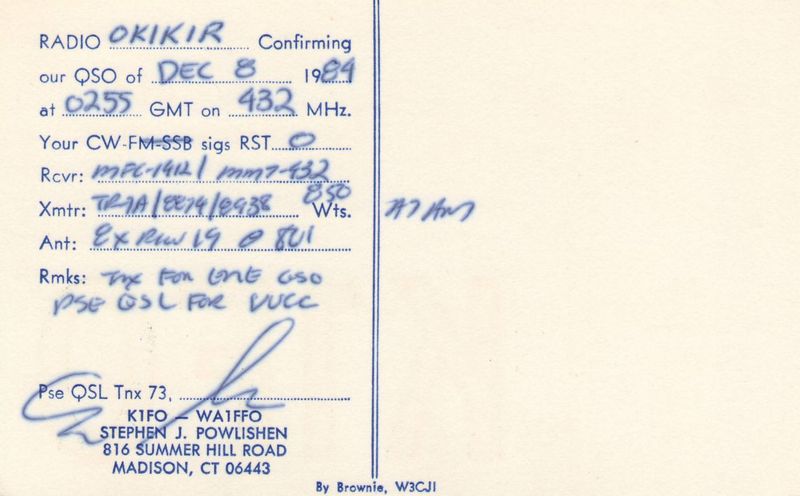 RADIO OK1KIR Confirming
our QSO of DEC 8 1984
at 0255 GMT on 432 MHz.
Your CW-FM-SSB sigs RST O
Rcvr: MFC-1412 / MMT-432
Xmtr: TR7A/8874/8938 850 Wts. AT ANT
Ant: 8X RIW 19 @ 80'
Rmks: TNX FOR EME QSO
PSE QSL FOR VUCC
Pse QSL Tnx 73,
K1FO — WA1FFO
STEPHEN J. POWLISHEN
816 SUMMER HILL ROAD
MADISON, CT 06443
By Brownie, W3CJI